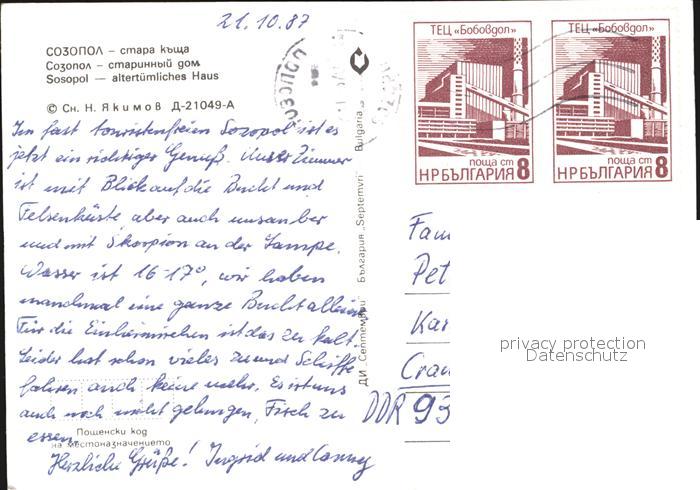 21.10.87
СОЗОПОЛ – стара къща
Созопол – старинный дом
Sosopol — altertümliches Haus
© Сн. Н. Якимов Д-21049-А
Im fast touristenfreien Sozopol ist es
jetzt ein richtiger Genuß. Unser Zimmer
ist mit Blick auf die Bucht und
Felsenküste aber auch unsauber
und mit Skorpion an der Lampe.
Wasser ist 16-17°, wir haben
manchmal eine ganze Bucht allein.
Für die Einheimischen ist das zu kalt.
Leider hat schon vieles zu und Schiffe
fahren auch keine mehr. Es ist uns
auch noch nicht gelungen, Fisch zu
essen.
Herzliche Grüße! Ingrid und
Пощенски код
на местоназначението
ДИ „Септември" България „Septemvri" Bulgaria
СОЗОПОЛ
ТЕЦ «Бобовдол»
поща ст
НРБЪЛГАРИЯ 8
ТЕЦ «Бобовдол»
поща ст
НРБЪЛГАРИЯ 8
Fam
Pet
Kar
Cra
DDR 93
privacy protection
Datenschutz